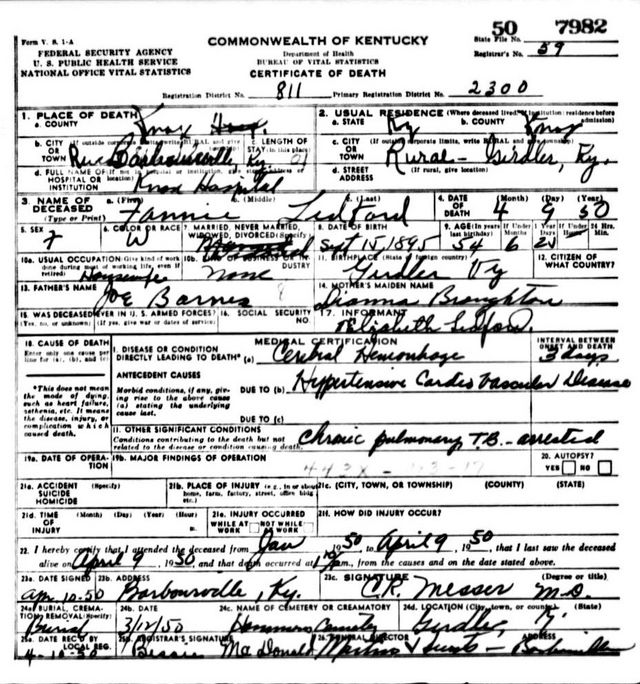 50 7982
Form V. S. 1-A
COMMONWEALTH OF KENTUCKY
State File No.
FEDERAL SECURITY AGENCY
Department of Health
Registrar's No. 59
U. S. PUBLIC HEALTH SERVICE
BUREAU OF VITAL STATISTICS
NATIONAL OFFICE VITAL STATISTICS
CERTIFICATE OF DEATH
Registration District No. 811 Primary Registration District No. 2300
1. PLACE OF DEATH
a. COUNTY Knox
2. USUAL RESIDENCE (Where deceased lived. If institution: residence before admission)
a. STATE Ky b. COUNTY Knox
b. CITY OR TOWN Barbourville, Ky.
c. LENGTH OF STAY (in this place)
c. CITY OR TOWN Rural - Girdler, Ky.
d. FULL NAME OF HOSPITAL OR INSTITUTION Knox Hospital
d. STREET ADDRESS (If rural, give location)
3. NAME OF DECEASED (Type or Print)
a. (First) Fannie b. (Middle) c. (Last) Ledford
4. DATE OF DEATH (Month) (Day) (Year) 4 9 50
5. SEX F
6. COLOR OR RACE W
7. MARRIED, NEVER MARRIED, WIDOWED, DIVORCED (Specify)
8. DATE OF BIRTH Sept 15, 1895
9. AGE (In years last birthday) 54 6
10a. USUAL OCCUPATION (Give kind of work done during most of working life, even if retired) Housewife
10b. KIND OF BUSINESS OR INDUSTRY None
11. BIRTHPLACE (State or foreign country) Girdler Ky
12. CITIZEN OF WHAT COUNTRY?
13. FATHER'S NAME Joe Barnes
14. MOTHER'S MAIDEN NAME Dianna Broughton
15. WAS DECEASED EVER IN U. S. ARMED FORCES? (Yes, no, or unknown) (If yes, give war or dates of service)
16. SOCIAL SECURITY NO.
17. INFORMANT Elizabeth Ledford
18. CAUSE OF DEATH
Enter only one cause per line for (a), (b), and (c)
MEDICAL CERTIFICATION
INTERVAL BETWEEN ONSET AND DEATH
I. DISEASE OR CONDITION DIRECTLY LEADING TO DEATH* (a) Cerebral Hemorrhage 3 days
*This does not mean the mode of dying, such as heart failure, asthenia, etc. It means the disease, injury, or complication which caused death.
ANTECEDENT CAUSES
Morbid conditions, if any, giving rise to the above cause (a) stating the underlying cause last.
DUE TO (b) Hypertensive Cardio Vascular Disease
DUE TO (c)
II. OTHER SIGNIFICANT CONDITIONS
Conditions contributing to the death but not related to the disease or condition causing death.
Chronic pulmonary T.B. - arrested
19a. DATE OF OPERATION
19b. MAJOR FINDINGS OF OPERATION
443X
20. AUTOPSY?
YES NO
21a. ACCIDENT SUICIDE HOMICIDE (Specify)
21b. PLACE OF INJURY (e.g., in or about home, farm, factory, street, office bldg etc.)
21c. (CITY, TOWN, OR TOWNSHIP) (COUNTY) (STATE)
21d. TIME OF INJURY (Month) (Day) (Year) (Hour) m.
21e. INJURY OCCURRED
WHILE AT WORK NOT WHILE AT WORK
21f. HOW DID INJURY OCCUR?
22. I hereby certify that I attended the deceased from Jan 1950, to April 9, 1950, that I last saw the deceased
alive on April 9 1950 and that death occurred at m., from the causes and on the date stated above.
23a. DATE SIGNED Ap. 10-50
23b. ADDRESS Barbourville, Ky.
23c. SIGNATURE C.R. Messer (Degree or title) M.D.
24a. BURIAL, CREMATION, REMOVAL (Specify) Burial
24b. DATE 3/12/50
24c. NAME OF CEMETERY OR CREMATORY Cemetery
24d. LOCATION (City, town, or county) (State) Girdler, Ky.
25a. DATE REC'D BY LOCAL REG. 4-10-50
25b. REGISTRAR'S SIGNATURE Bessie MacDonald
ADDRESS Barbourville